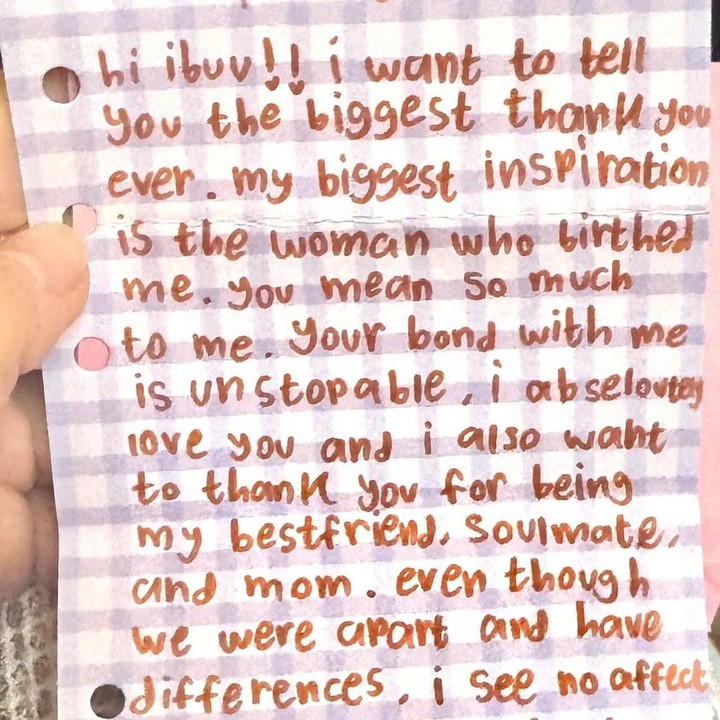 hi ibuv!! i want to tell
you the biggest thank you
ever. my biggest inspiration
is the woman who birthed
me. you mean so much
to me. your bond with me
is unstopable, i abseloutey
love you and i also waht
to thank you for being
my bestfriend, soulmate,
and mom. even though
we were apart and have
differences, i see no affect